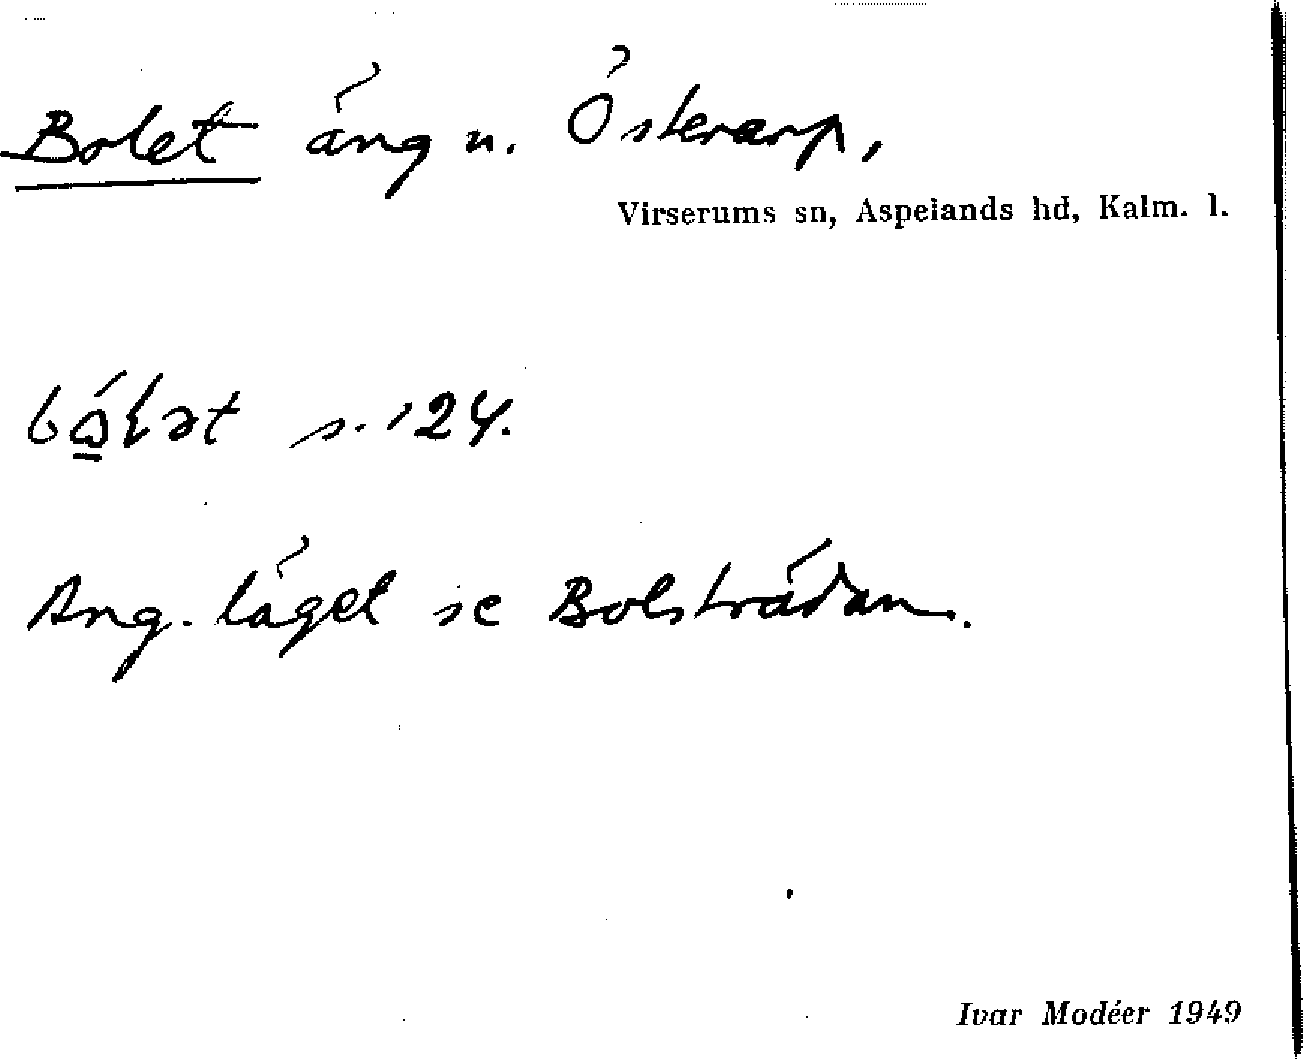 Bolet äng u. Österarp,
Virserums sn, Aspelands hd, Kalm. l.
s. 124.
Ang. läget se Bolsträdan.
Ivar Modéer 1949